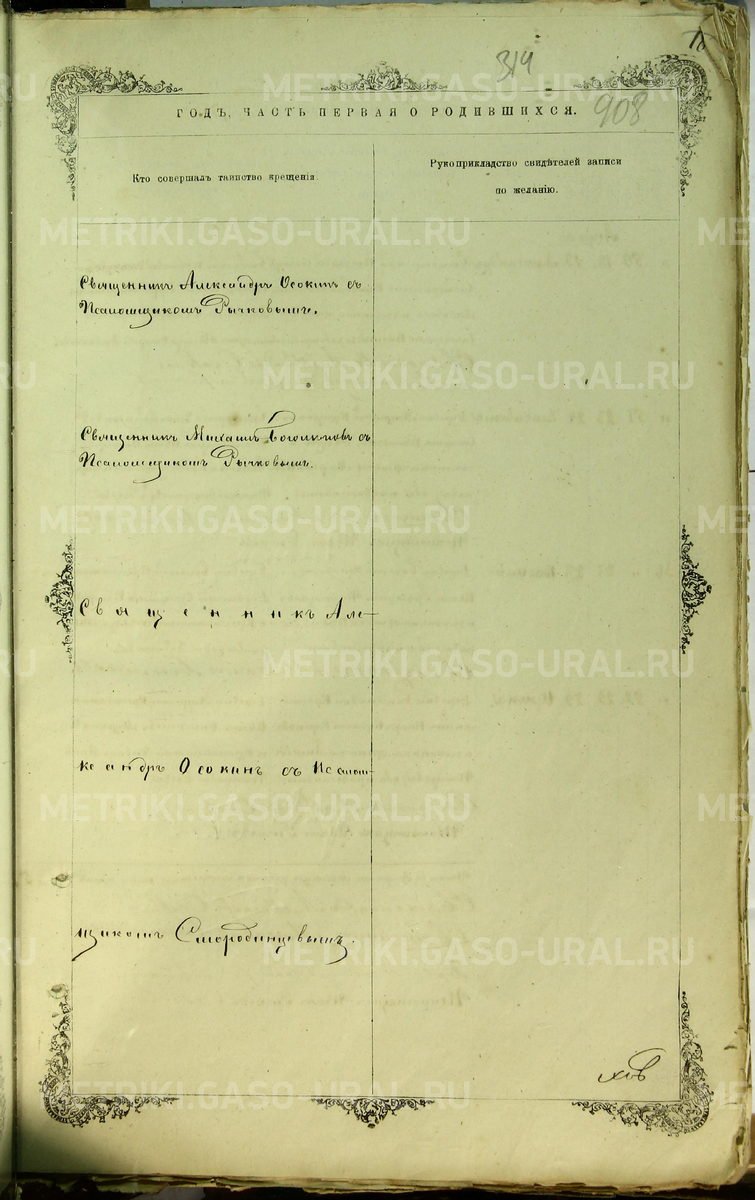 314
908
ГОДЪ, ЧАСТЬ ПЕРВАЯ О РОДИВШИХСЯ.
Кто совершалъ таинство крещенія.
Рукоприкладство свидѣтелей записи
по желанію.
Священникъ Александръ Осокинъ съ
Псаломщикомъ Рычковымъ.
Священникъ Михаилъ съ
Псаломщикомъ Рычковымъ.
Священникъ Але-
ксандръ Осокинъ съ Псалом-
щикомъ Смородинцевымъ.
METRIKI.GASO-URAL.RU